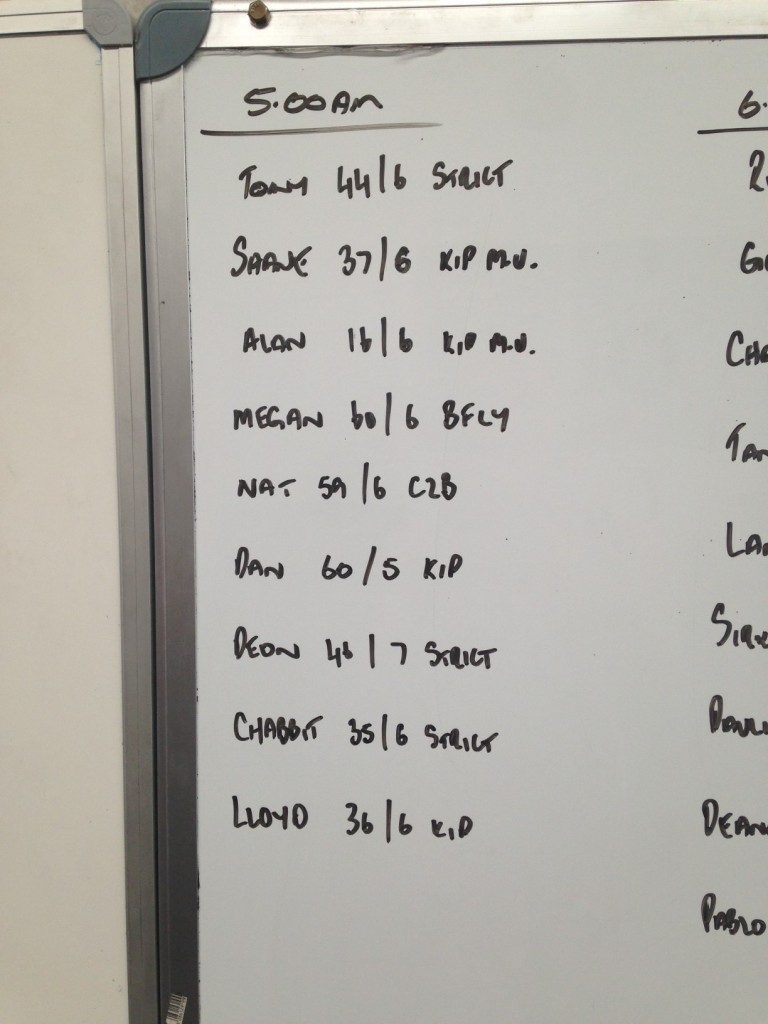 5.00AM
TONY 44/6 STRICT
37/6 KIP M.U.
ALAN 16/6 KIP M.U.
MEGAN 60/6 BFLY
NAT 59/6 C2B
DAN 60/5 KIP
DEON 46/7 STRICT
CHABBIT 35/6 STRICT
LLOYD 36/6 KIP
6.
R
G
CHA
TAN
LA
DEAN
PABLO